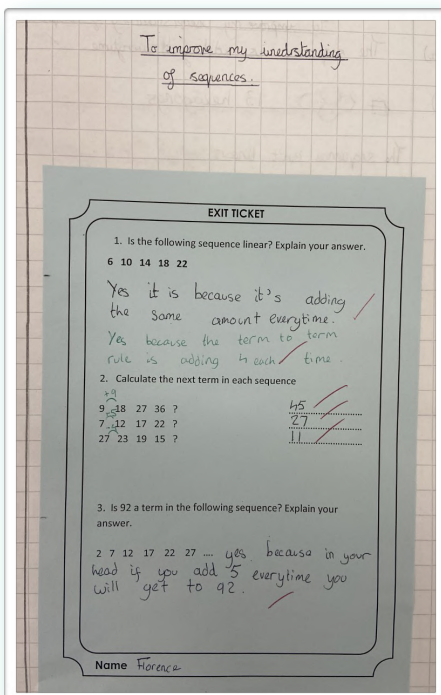 To improve my unedrstanding
of sequences.
EXIT TICKET
1. Is the following sequence linear? Explain your answer.
6 10 14 18 22
Yes it is because it's adding
the same amount everytime.
Yes because the term to term
rule is adding 4 each time.
2. Calculate the next term in each sequence
+9
9 18 27 36 ? 45
7 12 17 22 ? 27
27 23 19 15 ? 11
3. Is 92 a term in the following sequence? Explain your
answer.
2 7 12 17 22 27 .... yes because in your
head if you add 5 everytime you
will get to 92.
Name Florence